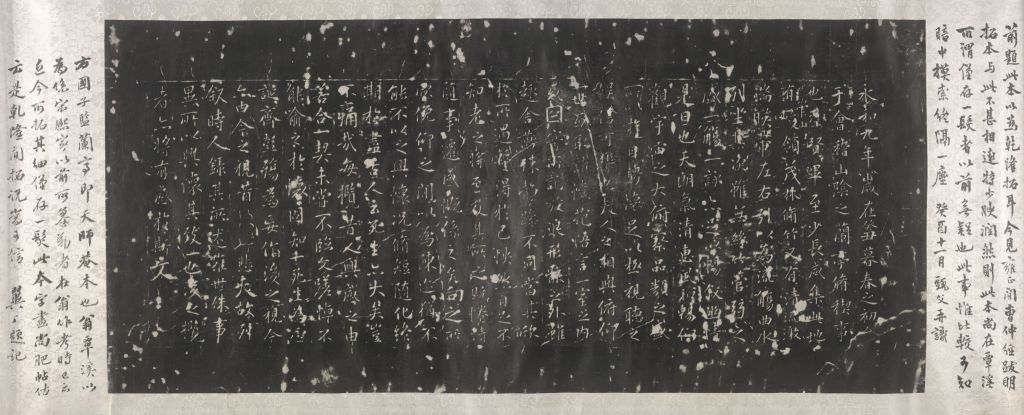 前題此本以為乾隆拓耳今見雍正間曹仲經跋明
拓本与此不甚相遠特少腴潤然則此本尚在覃溪
所謂僅存一髮者以前無疑也此事惟比較可知
暗中摸索終隔一塵 癸酉十一月 觀父再識
永和九年歲在癸丑暮春之初會
于會稽山陰之蘭亭脩稧事
也羣賢畢至少長咸集此地
有峻領茂林脩竹又有清流激
湍暎帶左右引以為流觴曲水
列坐其次雖無絲竹管弦之
盛一觴一詠亦足以暢敘幽情
是日也天朗氣清惠風和暢仰
觀宇宙之大俯察品類之盛
所以遊目騁懷足以極視聽之
娛信可樂也夫人之相與俯仰
一世或取諸懷抱悟言一室之內
或因寄所託放浪形骸之外雖
趣舍萬殊靜躁不同當其欣
於所遇蹔得於己快然自足不
知老之將至及其所之既惓情
隨事遷感慨係之矣向之所
欣俛仰之間以為陳迹猶不
能不以之興懷況脩短隨化終
期於盡古人云死生亦大矣豈
不痛哉每攬昔人興感之由
若合一契未嘗不臨文嗟悼不
能喻之於懷固知一死生為虛
誕齊彭殤為妄作後之視今
亦由今之視昔悲夫故列
敘時人錄其所述雖世殊事
異所以興懷其致一也後之攬
者亦將有感於斯文
右國子監蘭亭即天師菴本也翁覃溪以
為宋熙寧以前所摹勒者在翁作考時已云
近今所拓其細僅存一髮此本字畫尚肥帖估
云是乾隆間拓訊當可信 題記